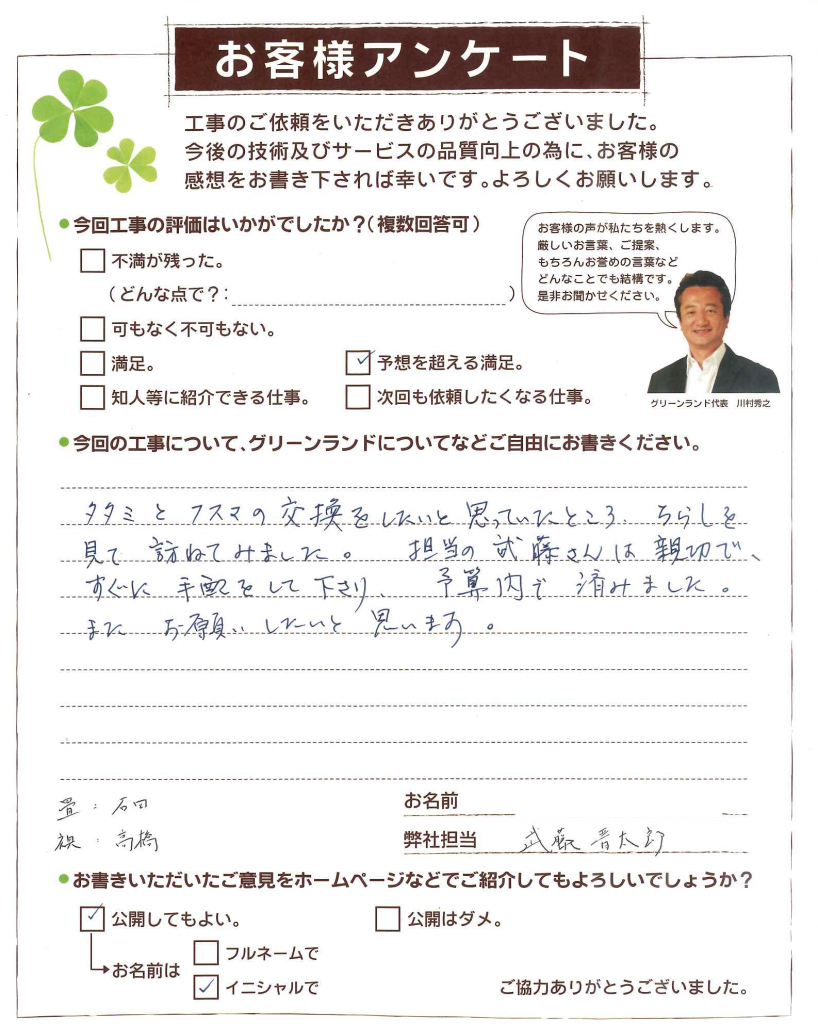 お客様アンケート
工事のご依頼をいただきありがとうございました。
今後の技術及びサービスの品質向上の為に、お客様の
感想をお書き下されば幸いです。よろしくお願いします。
●今回工事の評価はいかがでしたか？（複数回答可）
お客様の声が私たちを熱くします。
厳しいお言葉、ご提案、
もちろんお誉めの言葉など
どんなことでも結構です。
是非お聞かせください。
不満が残った。
（どんな点で？：　）
可もなく不可もない。
満足。
予想を超える満足。
知人等に紹介できる仕事。
次回も依頼したくなる仕事。
グリーンランド代表　川村秀之
●今回の工事について、グリーンランドについてなどご自由にお書きください。
タタミとフスマの交換をしたいと思っていたところ、ちらしを
見て 訪ねてみました。 担当の武藤さんは親切で、
すぐに手配をして下さり、 予算内で 済みました。
また お願いしたいと思います。
畳：石田
襖：高橋
お名前
弊社担当　武藤晋太郎
●お書きいただいたご意見をホームページなどでご紹介してもよろしいでしょうか？
公開してもよい。
公開はダメ。
お名前は
フルネームで
イニシャルで
ご協力ありがとうございました。